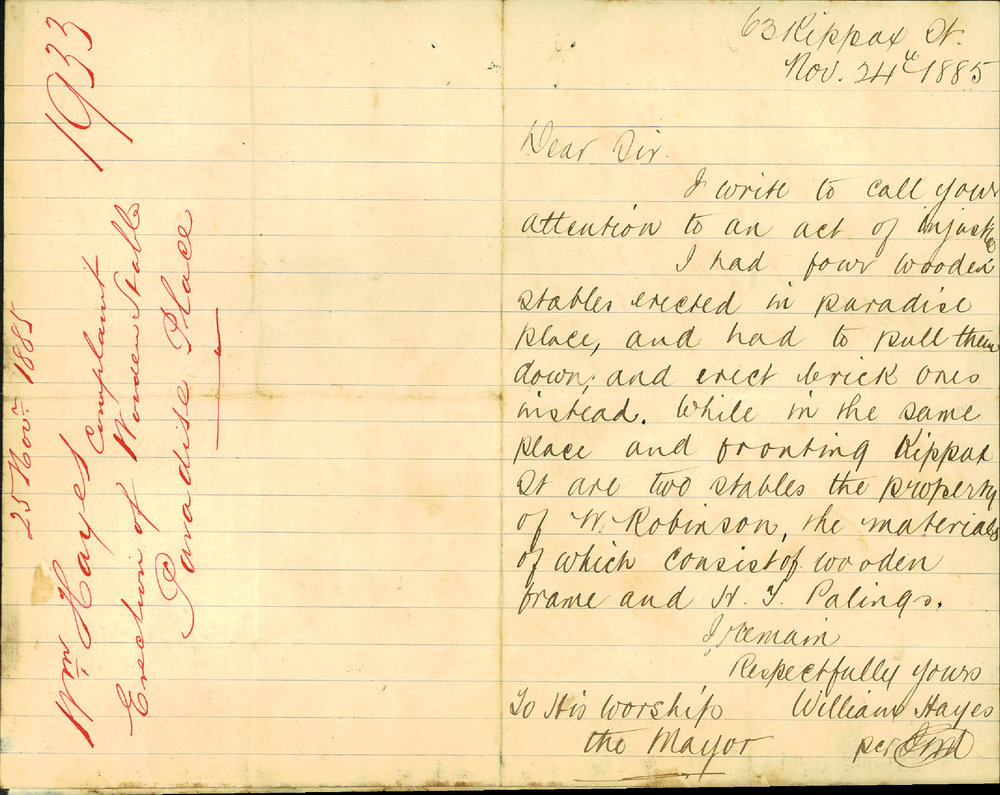 1933
25 Novr. 1885
Wm. Hayes
Complaint
Erection of Wooden Stable
Paradise Place
63 Kippax St.
Nov. 24th 1885
Dear Sir.
I write to call your
attention to an act of injustice
I had four wooden
stables erected in paradise
place, and had to pull them
down, and erect brick ones
instead. While in the same
place and fronting Kippax
St are two stables the property
of W. Robinson, the materials
of which consist of wooden
frame and H. T. Palings.
I remain
Respectfully yours
To His Worship William Hayes
the Mayor per